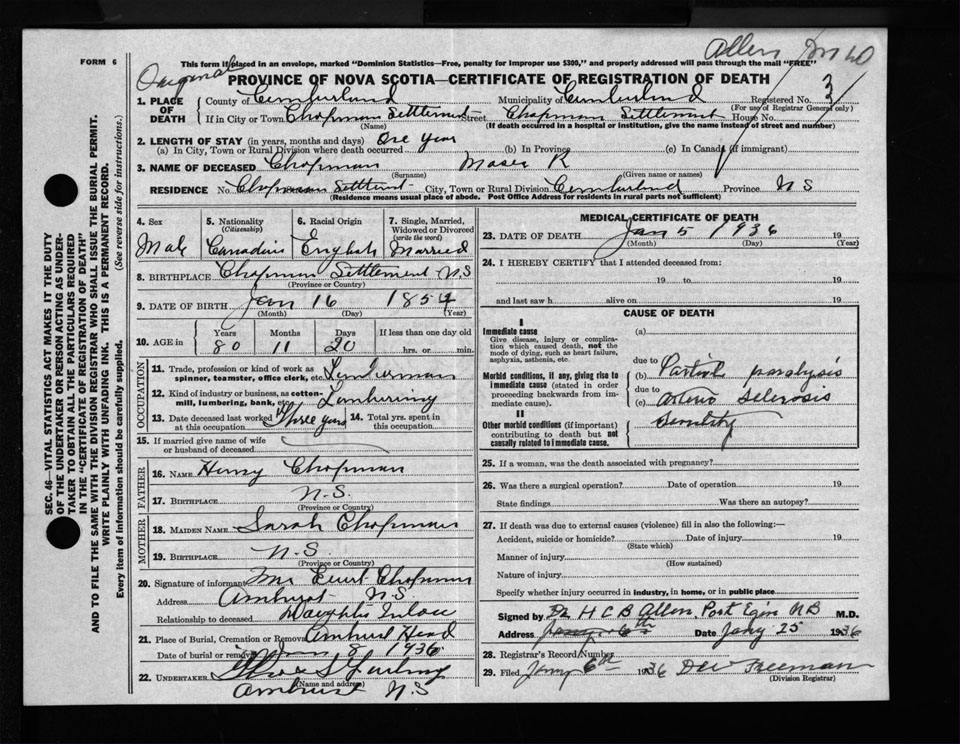 FORM 6
Allen
This form if placed in an envelope, marked "Dominion Statistics—Free, penalty for improper use $300," and properly addressed will pass through the mail "FREE"
Original
PROVINCE OF NOVA SCOTIA—CERTIFICATE OF REGISTRATION OF DEATH
1. PLACE OF DEATH
County of Cumberland Municipality of Cumberland Registered No. 3
(For use of Registrar General only)
If in City or Town Chapman Settlement Street Chapman Settlement House No.
(Name) (If death occurred in a hospital or institution, give the name instead of street and number)
2. LENGTH OF STAY (in years, months and days) One year
(a) In City, Town or Rural Division where death occurred (b) In Province (c) In Canada (if immigrant)
3. NAME OF DECEASED Chapman Moses R
(Surname) (Given name or names)
RESIDENCE No. Chapman Settlemt City, Town or Rural Division Cumberland Province N S
(Residence means usual place of abode. Post Office Address for residents in rural parts not sufficient)
4. Sex
Male
5. Nationality
(Citizenship)
Canadian
6. Racial Origin
English
7. Single, Married, Widowed or Divorced
(write the word)
Married
8. BIRTHPLACE Chapman Settlement N.S
(Province or Country)
9. DATE OF BIRTH Jan 16
(Month) (Day) (Year)
10. AGE in Years Months Days If less than one day old
80 11 20 hrs. or min.
OCCUPATION
11. Trade, profession or kind of work as spinner, teamster, office clerk, etc. Lumberman
12. Kind of industry or business, as cotton-mill, lumbering, bank, etc. Lumbering
13. Date deceased last worked at this occupation Three years 14. Total yrs. spent in this occupation
15. If married give name of wife or husband of deceased
FATHER
16. NAME Henry Chapman
17. BIRTHPLACE N.S.
(Province or Country)
MOTHER
18. MAIDEN NAME Sarah Chapman
19. BIRTHPLACE N.S.
(Province or Country)
20. Signature of informant Mrs Chapman
Address Amherst N.S.
Relationship to deceased Daughter Inlaw
21. Place of Burial, Cremation or Removal Amherst Head
Date of burial or removal Jan 8 1936
22. UNDERTAKER
(Name and address)
Amherst N.S
MEDICAL CERTIFICATE OF DEATH
23. DATE OF DEATH Jan 5 1936 19
(Month) (Day) (Year)
24. I HEREBY CERTIFY that I attended deceased from:
19 to 19
and last saw h alive on 19
CAUSE OF DEATH
I
Immediate cause (a)
Give disease, injury or complication which caused death, not the mode of dying, such as heart failure, asphyxia, asthenia, etc.
due to
Morbid conditions, if any, giving rise to immediate cause (stated in order proceeding backwards from immediate cause).
(b) Partial paralysis
due to
(c) Arterio Sclerosis
II
Other morbid conditions (if important) contributing to death but not causally related to immediate cause.
Senility
25. If a woman, was the death associated with pregnancy?
26. Was there a surgical operation? Date of operation 19
State findings Was there an autopsy?
27. If death was due to external causes (violence) fill in also the following:—
Accident, suicide or homicide? Date of injury 19
(State which)
Manner of injury
(How sustained)
Nature of injury
Specify whether injury occurred in industry, in home, or in public place
Signed by Dr H C B Allen, Port Elgin NB M.D.
Address Date Jany 25 1936
28. Registrar's Record Number
29. Filed Jany 6th 1936 Freeman
(Division Registrar)
SEC. 46—VITAL STATISTICS ACT MAKES IT THE DUTY
OF THE UNDERTAKER OR PERSON ACTING AS UNDER-
TAKER TO OBTAIN ALL THE PARTICULARS REQUIRED
IN THE "CERTIFICATE OF REGISTRATION OF DEATH"
AND TO FILE THE SAME WITH THE DIVISION REGISTRAR WHO SHALL ISSUE THE BURIAL PERMIT.
WRITE PLAINLY WITH UNFADING INK. THIS IS A PERMANENT RECORD.
Every item of information should be carefully supplied. (See reverse side for instructions.)